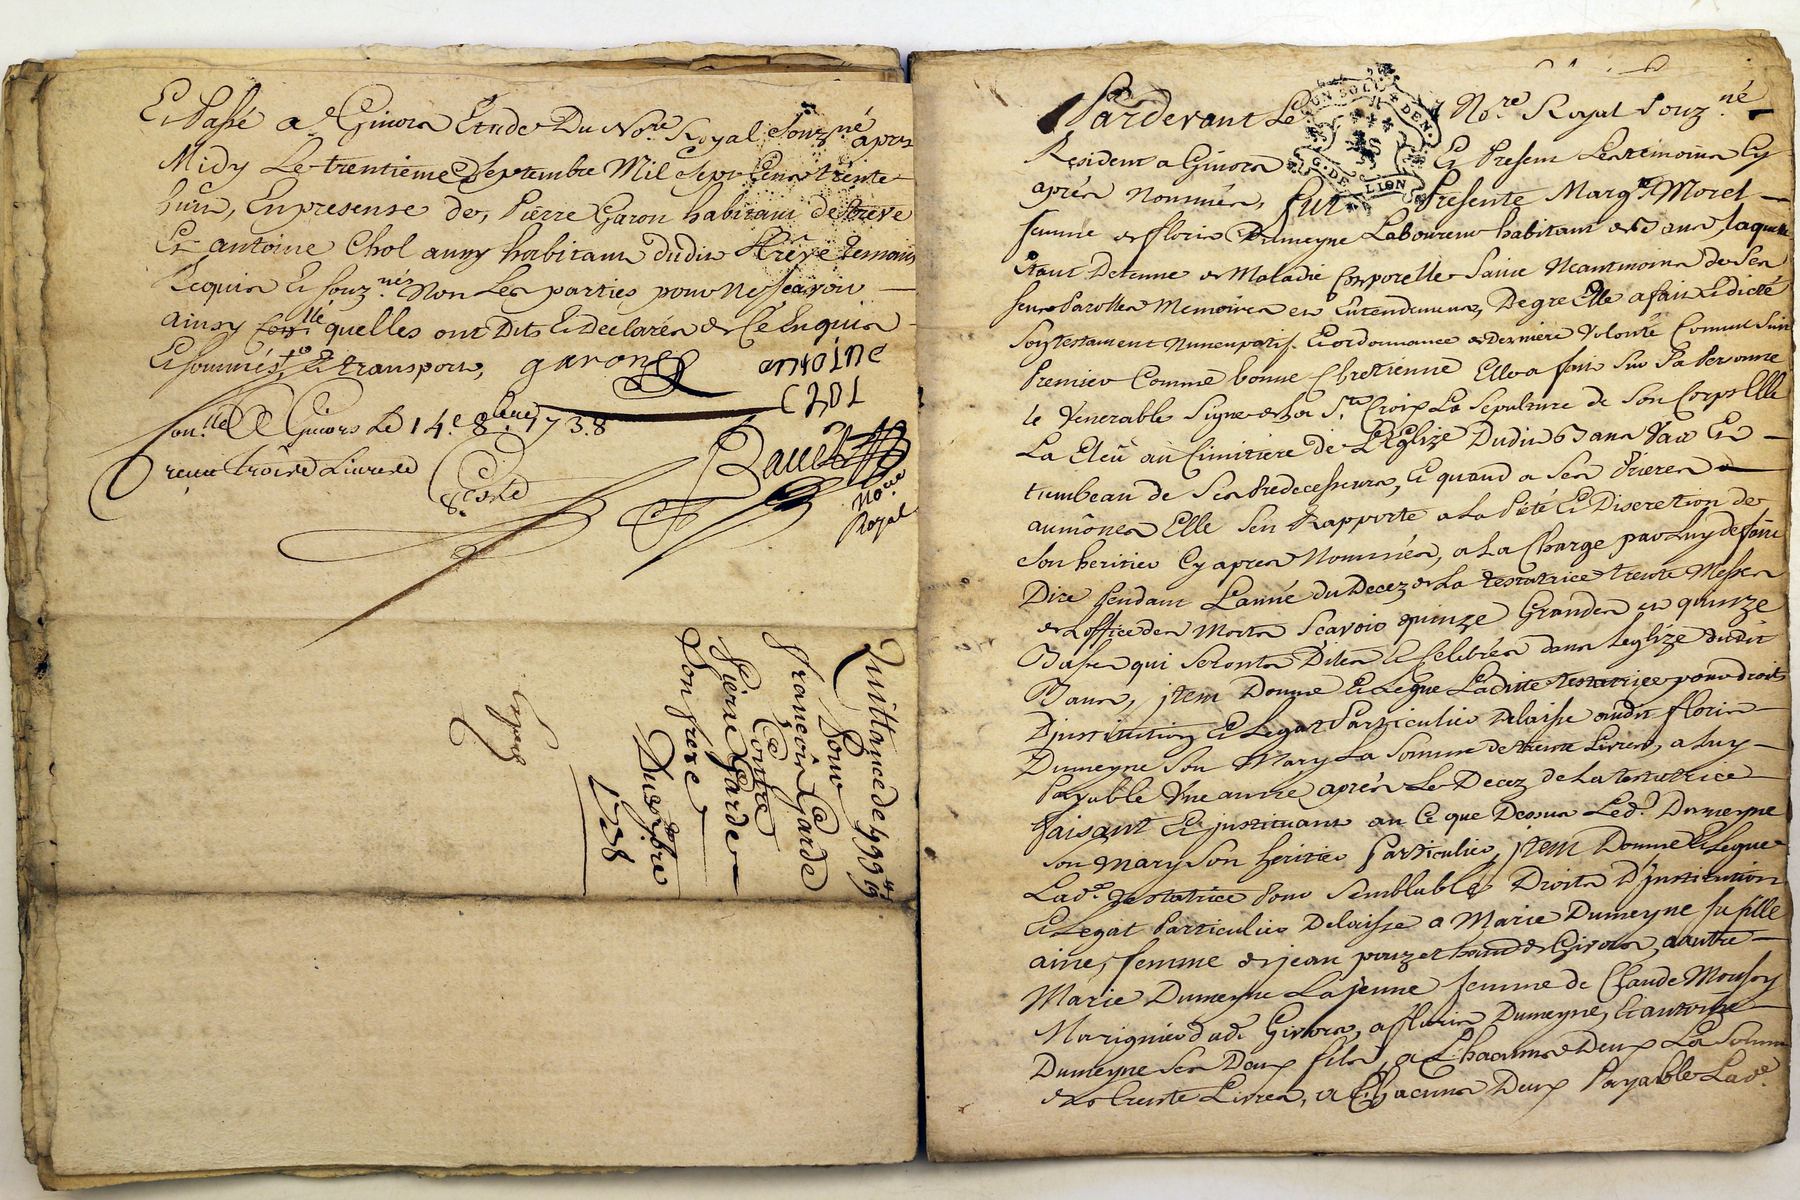 Et Passé a Givors Etude Du No.re Royal Souz.né apres
Midy Le trentieme Septembre Mil Sept Cent trente
huit, En presense de, Pierre Garon habitant de
Et antoine Chol aussy habitant dudit temoins
Requis Et Souz.nés Non Les parties pour ne Scavoir
ainsy quelles ont Dits Et Declarés de Ce Enquis
Et Sommés, Et transport, garon antoine
Chol
Con.llé A Givors Le 14.e 8.bre 1738
receu trois Livres
No.re
Royal
Quittance de 199
Pour
francois Garde
Contre
Pierre Garde
Son frere
Du 7bre
1738
UN SOL DEN.
G. DE LION
Pardevant Le No.re Royal Souz.né
Resident a Givors Et Present Les temoins Cy
aprés Nommés, fut Presente Marg.te Moret
femme de floris Dumeyne Laboureur habitant de Bans, laquelle
Etant Detenue de Maladie Corporelle Saine Neantmoins de Ses
Sens Parolles Memoires et Entendement, De gre Elle a fait Et dicté
Son testament Nuncupatif Et ordonnance de Derniere Volonté Comme Suit
Premier Comme bonne Chretienne Elle a fait Sur Sa Personne
le Venerable Signe de La S.te Croix La Sepulture de Son Corps Elle
La Eleû au Cimitiere de L'Eglize Dudit Bans
tumbeau de Ses Predecesseurs, Et quand a Ses Prieres
aumônes Elle Sen Rapporte a La Pieté Et Discretion de
Son heritier Cy apres Nommés, a La Charge par Luy de faire
Dire Pendant Lanné du Decez de La testatrice trente Messes
de Loffice des Morts Scavoir quinze Grandes et quinze
Basses qui Seronts Dites Et Celebrés dans Leglize dudit
Bans, jtem Donne Et Legue Ladite testatrice pour droit
Djnstitution Et Legat Particulier Delaisse audit floris
Dumeyne Son Mary La Somme de trente Livres, a Luy
Payable Une année aprés Le Decez de La testatrice
faisant Et jnstituant au Ce que Dessus Led.t Dumeyne
Son Mary Son heritier Particulier, jtem Donne Et Legue
Lad.e testatrice Pour Semblable Droits D'jnstitution
Et Legat Particulier Delaisse a Marie Dumeyne Sa fille
ainé, femme de jean pouzet de Givors, a autre
Marie Dumeyne La jeune femme de Claude
Marignier dudt Givors, a floris Dumeyne, Et antoine
Dumeyne Ses Deux fils, a Chacuns Deux La Somme
de trente Livres, a Chacuns Deux Payable Lad.e